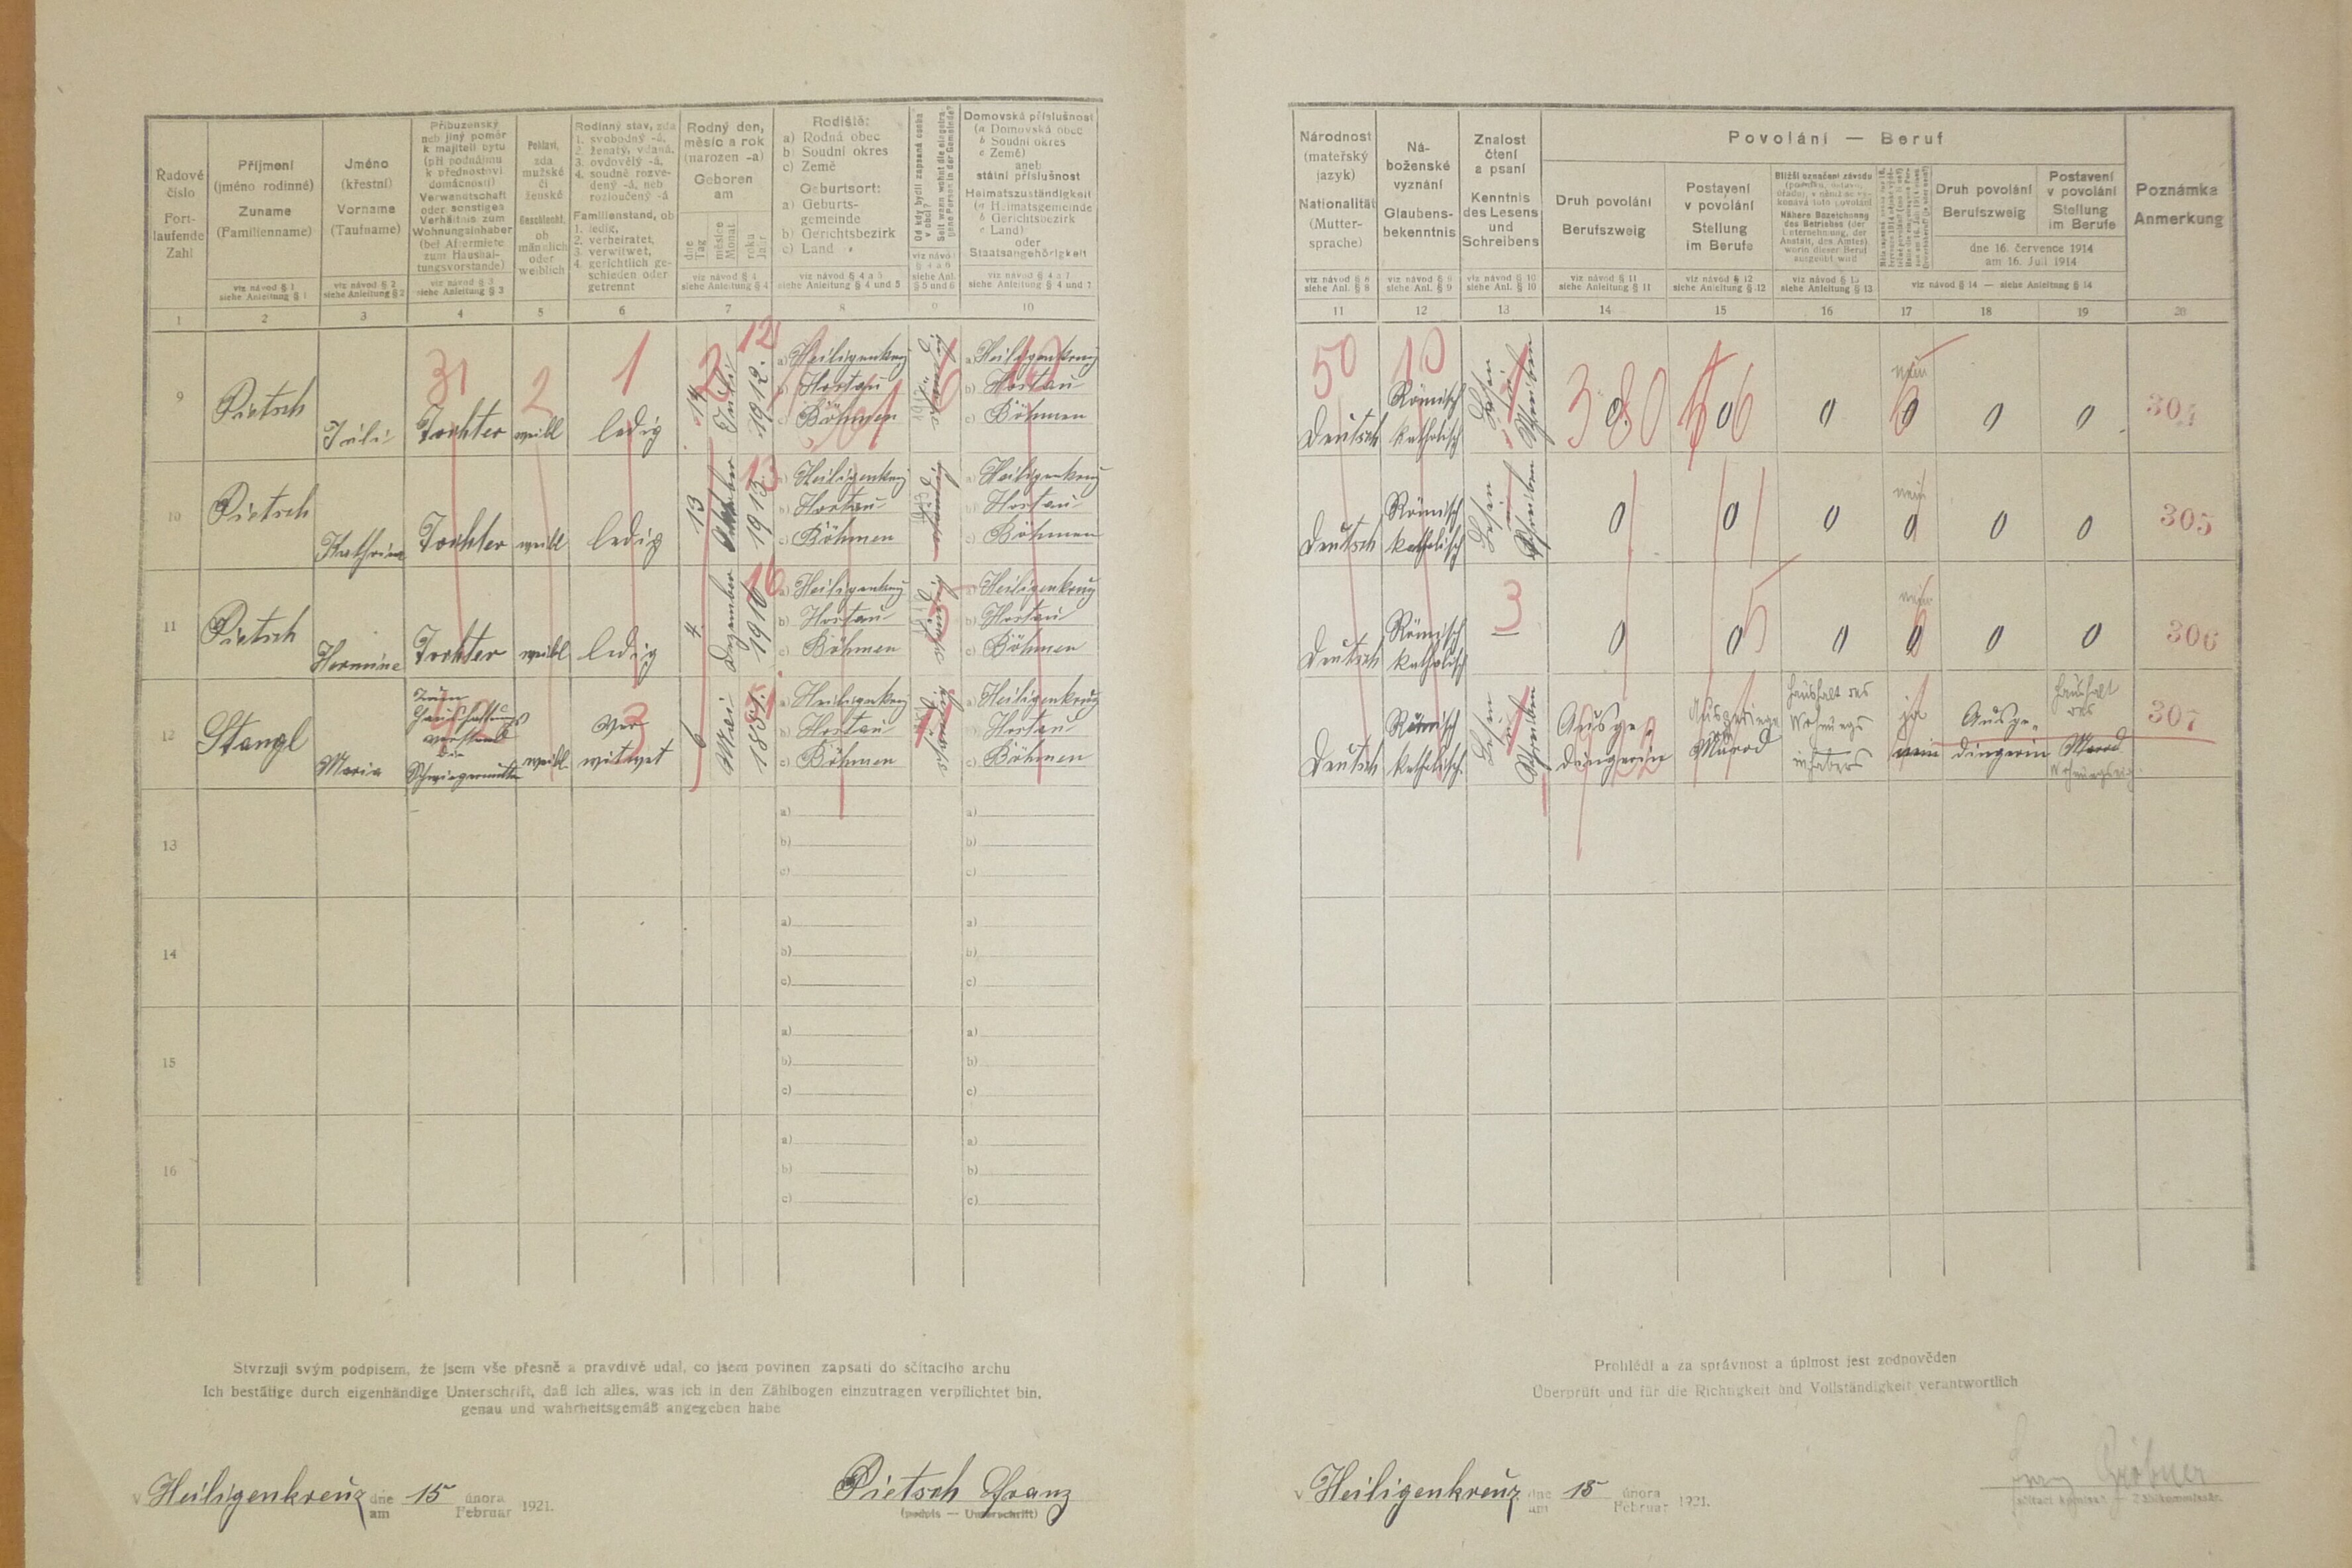 Řadové číslo
Fort-laufende Zahl
Příjmení
(jméno rodinné)
Zuname
(Familienname)
viz návod § 1
siehe Anleitung § 1
Jméno
(křestní)
Vorname
(Taufname)
viz návod § 2
siehe Anleitung § 2
Příbuzenský
neb jiný poměr
k majiteli bytu
(při podnájmu
k přednostovi
domácnosti)
Verwandtschaft
oder sonstiges
Verhältnis zum
Wohnungsinhaber
(bei Aftermiete
zum Haushal-
tungsvorstande)
viz návod § 3
siehe Anleitung § 3
Pohlaví,
zda
mužské
či
ženské
Geschlecht,
ob
männlich
oder
weiblich
Rodinný stav, zda
1. svobodný -á,
2. ženatý, vdaná,
3. ovdovělý -á,
4. soudně rozve-
dený -á, neb
rozloučený -á
Familienstand, ob
1. ledig,
2. verheiratet,
3. verwitwet,
4. gerichtlich ge-
schieden oder
getrennt
Rodný den,
měsíc a rok
(narozen -a)
Geboren
am
dne Tag
měsíce Monat
roku Jahr
viz návod § 4
siehe Anleitung § 4
Rodiště:
a) Rodná obec
b) Soudní okres
c) Země
Geburtsort:
a) Geburts-
gemeinde
b) Gerichtsbezirk
c) Land
viz návod § 4 a 5
siehe Anleitung § 4 und 5
Od kdy bydlí zapsaná osoba v obci?
Seit wann wohnt die eingetragene Person in der Gemeinde?
siehe Anl.
§ 5 und 6
Domovská příslušnost
(a Domovská obec
b Soudní okres
c Země)
aneb
státní příslušnost
Heimatszuständigkeit
(a Heimatsgemeinde
b Gerichtsbezirk
c Land)
oder
Staatsangehörigkeit
viz návod § 4 a 7
siehe Anleitung § 4 und 7
Národnost
(mateřský
jazyk)
Nationalität
(Mutter-
sprache)
viz návod § 8
siehe Anl. § 8
Ná-
boženské
vyznání
Glaubens-
bekenntnis
viz návod § 9
siehe Anl. § 9
Znalost
čtení
a psaní
Kenntnis
des Lesens
und
Schreibens
viz návod § 10
siehe Anl. § 10
Povolání — Beruf
Druh povolání
Berufszweig
viz návod § 11
siehe Anleitung § 11
Postavení
v povolání
Stellung
im Berufe
viz návod § 12
siehe Anleitung § 12
Bližší označení závodu
Nähere Bezeichnung
des Betriebes (der
Unternehmung, der
Anstalt, des Amtes)
worin dieser Beruf
ausgeübt wird
viz návod § 13
siehe Anleitung § 13
Druh povolání
Berufszweig
Postavení
v povolání
Stellung
im Berufe
dne 16. července 1914
am 16. Juli 1914
viz návod § 14 — siehe Anleitung § 14
Poznámka
Anmerkung
1 2 3 4 5 6 7 8 9 10 11 12 13 14 15 16 17 18 19 20
31 2 1 2 12
50 10
9 Pietsch Juli Tochter weibl ledig 14 Juli 1912.
a) Heiligenkreuz
b) Hostau
c) Böhmen
a) Heiligenkreuz
b) Hostau
c) Böhmen
Deutsch Römisch katholisch Lesen Schreiben 0 0 0 nein 0 0 0 304
380
10 Pietsch Katharina Tochter weibl ledig 13 Oktober 1913
a) Heiligenkreuz
b) Hostau
c) Böhmen
a) Heiligenkreuz
b) Hostau
c) Böhmen
Deutsch Römisch katholisch Lesen Schreiben 0 0 0 nein 0 0 0 305
11 Pietsch Hermine Tochter weibl ledig 4. Dezember 1916
a) Heiligenkreuz
b) Hostau
c) Böhmen
a) Heiligenkreuz
b) Hostau
c) Böhmen
Deutsch Römisch katholisch 3 0 0 0 nein 0 0 0 306
12 Stangl Maria
Zum
Haushaltungs
vorstand
die
Schwiegermutter
weibl. Ver
witwet 6 Mai
a) Heiligenkreuz
b) Hostau
c) Böhmen
a) Heiligenkreuz
b) Hostau
c) Böhmen
Deutsch Römisch katholisch. Lesen Schreiben
Ausge
dingerin
Haushalt des
Wohnungs
inhabers
ja
nein
Ausge-
dingerin
Haushalt
des
307
13
a)
b)
c)
a)
b)
c)
14
a)
b)
c)
a)
b)
c)
15
a)
b)
c)
a)
b)
c)
16
a)
b)
c)
a)
b)
c)
Stvrzuji svým podpisem, že jsem vše přesně a pravdivě udal, co jsem povinen zapsati do sčítacího archu
Ich bestätige durch eigenhändige Unterschrift, daß ich alles, was ich in den Zählbogen einzutragen verpflichtet bin,
genau und wahrheitsgemäß angegeben habe
V Heiligenkreuz dne am 15 února Februar 1921.
Pietsch Franz
(podpis — Unterschrift)
Prohlédl a za správnost a úplnost jest zodpověden
Überprüft und für die Richtigkeit und Vollständigkeit verantwortlich
V Heiligenkreuz dne am 15 února Februar 1921.
Gröbner
sčítací komisař — Zählkommissär.